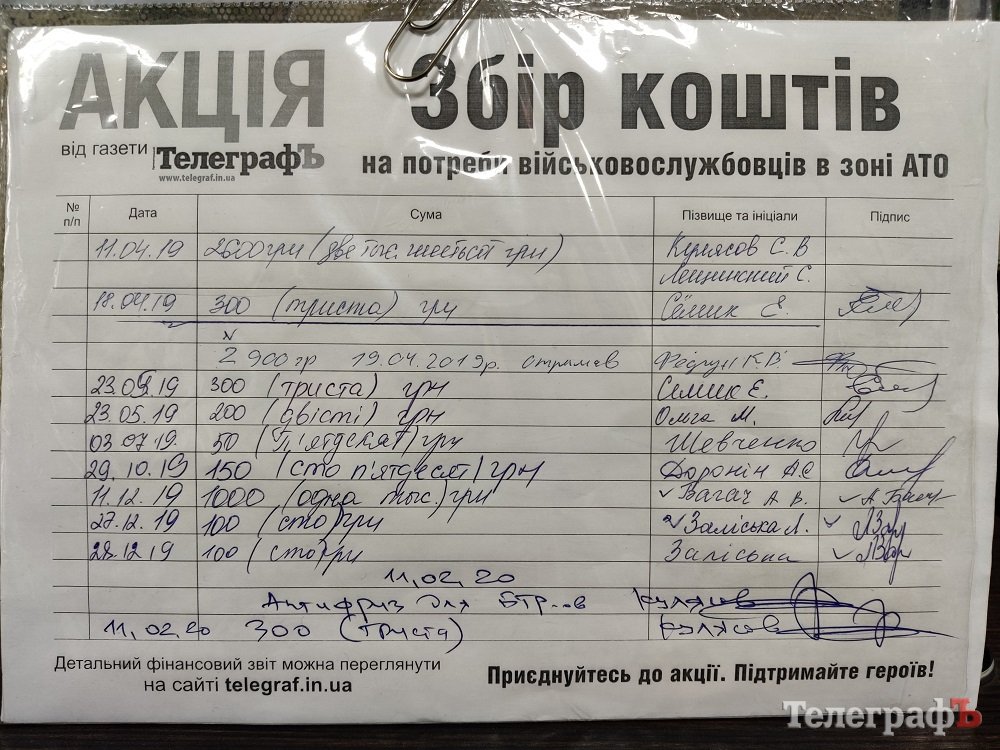 АКЦІЯ
Збір коштів
від газети ТелеграфЪ
www.telegraf.in.ua
на потреби військовослужбовців в зоні АТО
№ п/п Дата Сума Пізвище та ініціали Підпис
11.04.19 2600грн (две тыс. шестьсот грн) Кулясов С. В
Лещинский С.
18.04.19 300 (триста) грн Сёмик Е.
2 900гр 19.04.2019р. отримав Федчун К.В.
23.05.19 300 (триста) грн Семик Е.
23.05.19 200 (двісті) грн Ольга М.
03.07.19. 50 (П'ятдесят) грн Шевченко
29.10.19 150 (сто п'ятдесят) грн Доронін А.С.
11.12.19 1000 (одна тыс.) грн Багач А. В.
27.12.19 100 (сто) грн Заліська Л.
28.12.19 100 (сто) грн Заліська
11,02,20
Антифриз для БТР...ов Кулясов
11,02,20 300 (триста) Кулясов
Детальний фінансовий звіт можна переглянути
на сайті telegraf.in.ua
Приєднуйтесь до акції. Підтримайте героїв!
ТелеграфЪ